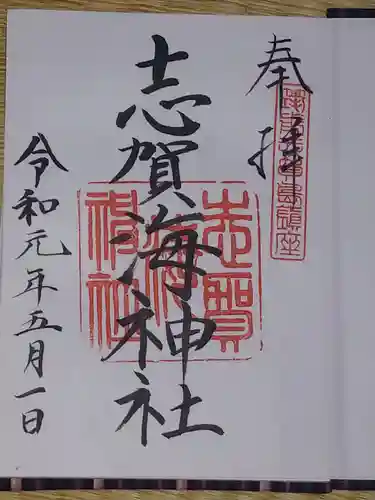 奉拝
志賀海神社
志賀海神社
令和元年五月一日